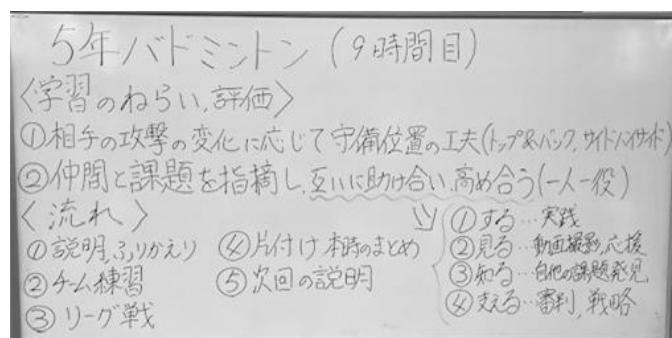 5年バドミントン(9時間目)
<学習のねらい、評価>
①相手の攻撃の変化に応じて守備位置の工夫(トップ&バック、サイドバイサイド)
②仲間と課題を指摘し、互いに助け合い、高め合う(一人一役)
<流れ>
①説明、ふりかえり
②チーム練習
③リーグ戦
④片付け、本時のまとめ
⑤次回の説明
①する…実践
②見る…動画撮影、応援
③知る…自他の課題発見
④支える…審判、戦略